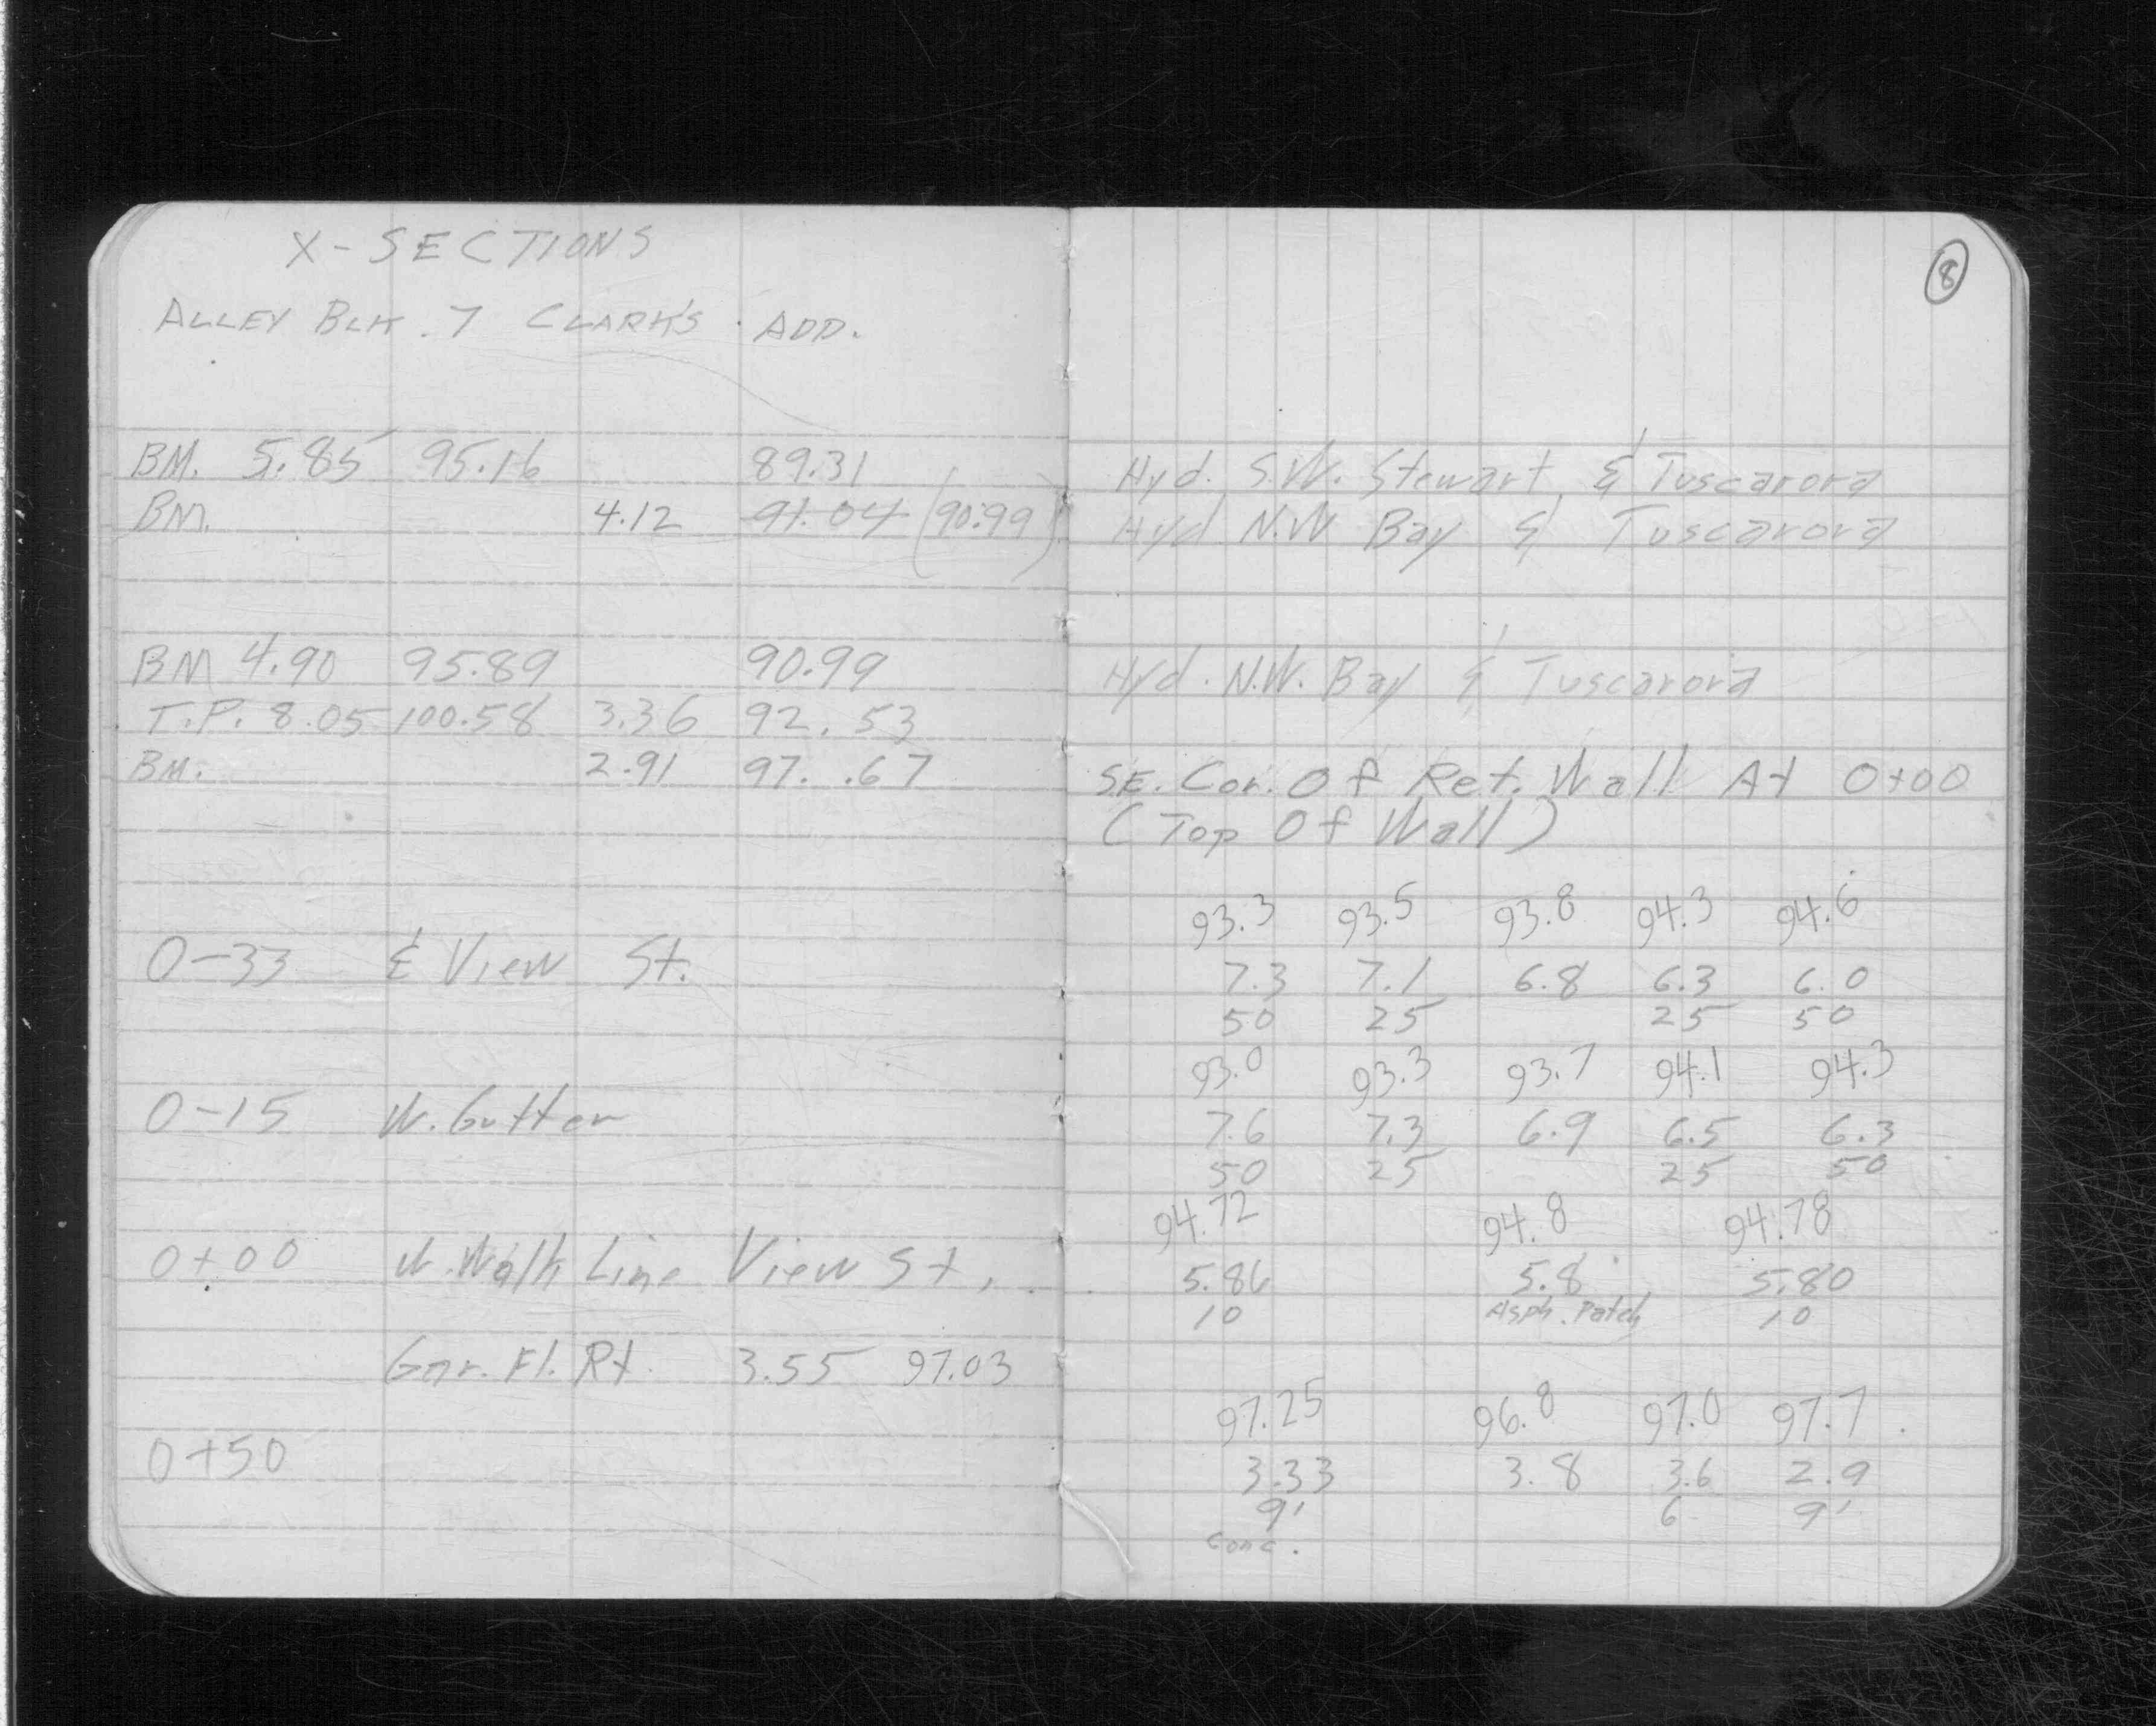 X-SECTIONS
ALLEY BLK. 7 CLARK'S ADD.
BM. 5.85 95.16 89.31
BM. 4.12 91.04 (90.99)
BM 4.90 95.89 90.99
T.P. 8.05 100.58 3.36 92.53
BM. 2.91 97.67
0-33 ₵ View St.
0-15 W. Gutter
0+00 W. Walk Line View St.
Gar. Fl. Rt. 3.55 97.03
0+50
8
Hyd. S.W. Stewart & Tuscarora
Hyd. N.W. Bay & Tuscarora
Hyd. N.W. Bay & Tuscarora
SE. Cor. Of Ret. Wall At 0+00
(Top Of Wall)
93.3 93.5 93.8 94.3 94.6
7.3 7.1 6.8 6.3 6.0
50 25 25 50
93.0 93.3 93.7 94.1 94.3
7.6 7.3 6.9 6.5 6.3
50 25 25 50
94.72 94.8 94.78
5.86 5.8 5.80
10 Asph. Patch 10
97.25 96.8 97.0 97.7
3.33 3.8 3.6 2.9
9' 6 9'
Conc.